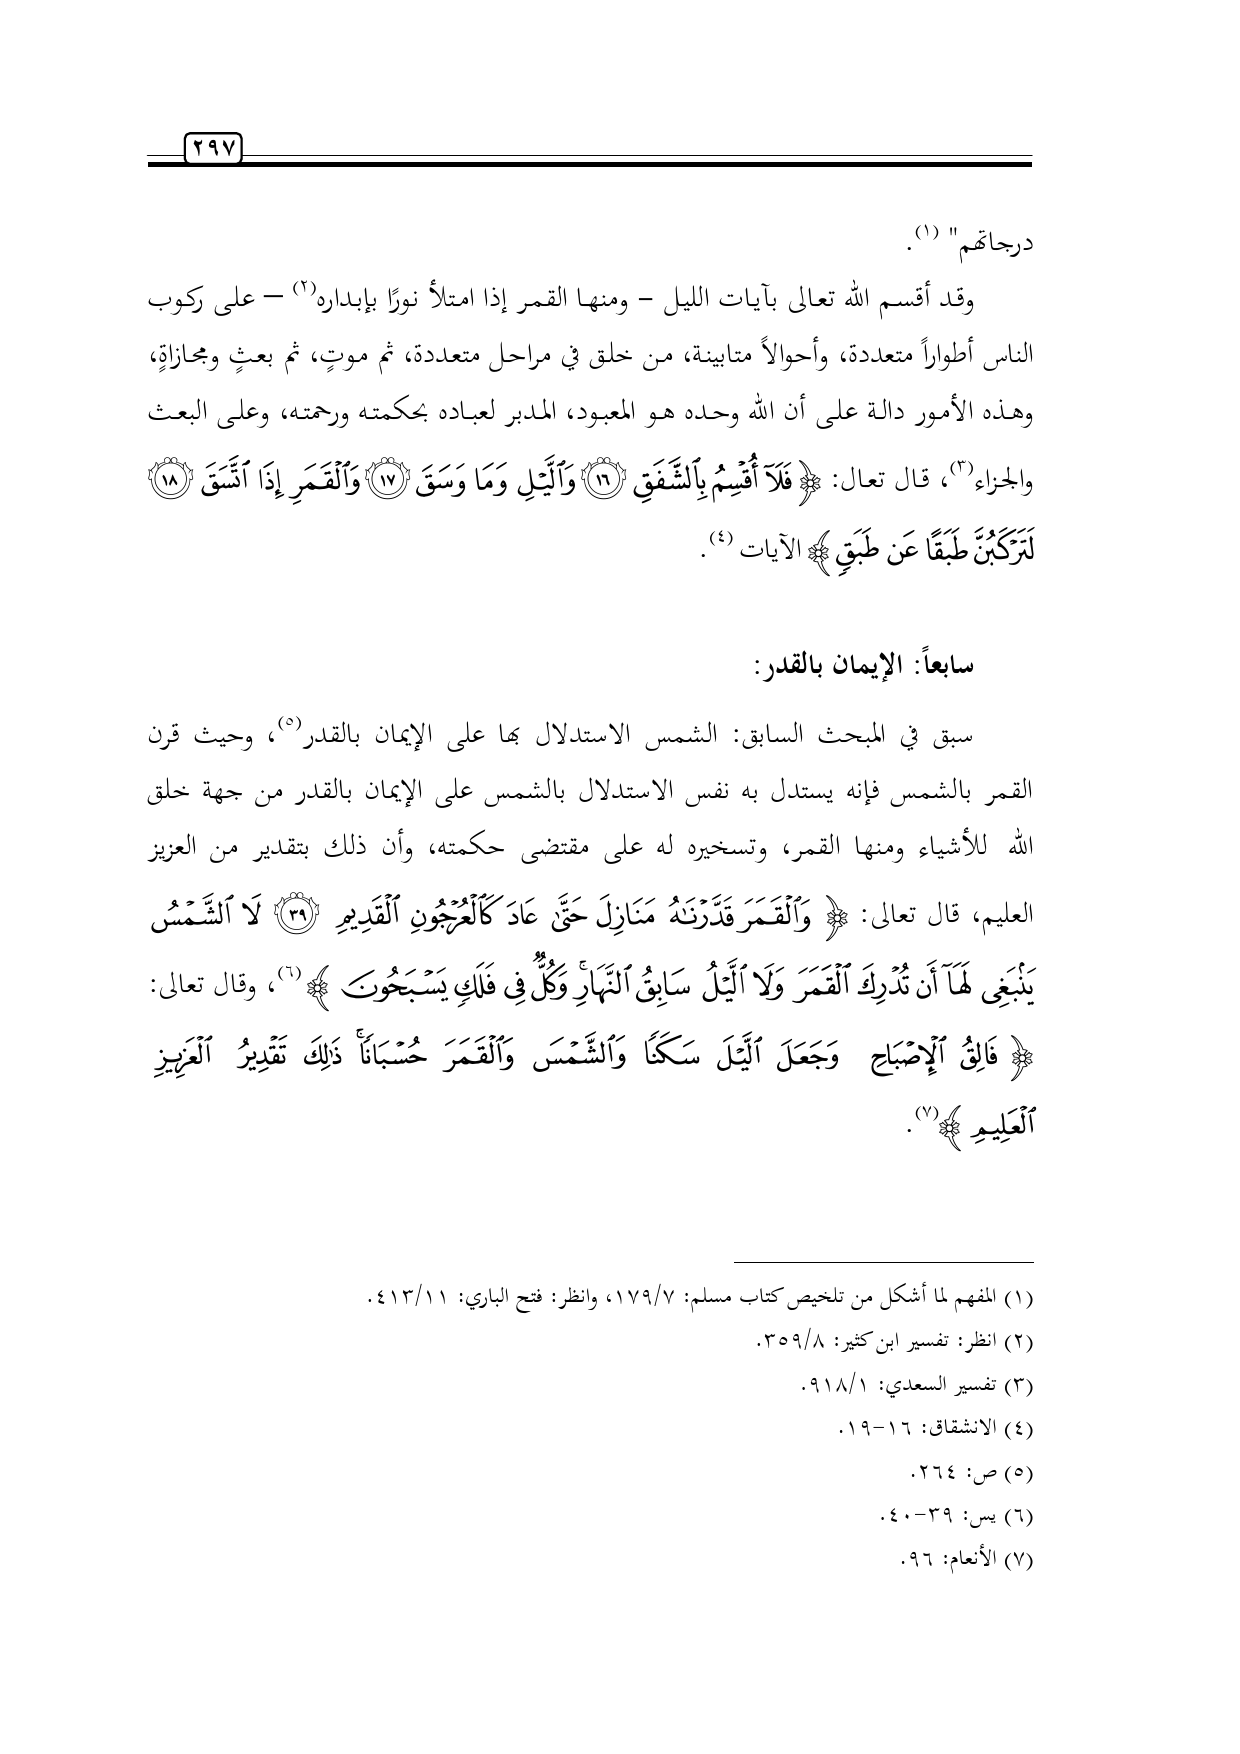 ٢٩٧
درجاتهم" (١).
وقد أقسم الله تعالى بآيات الليل – ومنها القمر إذا امتلأ نورًا بإبداره(٢) – على ركوب
الناس أطواراً متعددة، وأحوالاً متباينة، من خلق في مراحل متعددة، ثم موتٍ، ثم بعثٍ ومجازاةٍ،
وهذه الأمور دالة على أن الله وحده هو المعبود، المدبر لعباده بحكمته ورحمته، وعلى البعث
والجزاء(٣)، قال تعال: ﴿ فَلَآ أُقۡسِمُ بِٱلشَّفَقِ ١٦ وَٱلَّيۡلِ وَمَا وَسَقَ ١٧ وَٱلۡقَمَرِ إِذَا ٱتَّسَقَ ١٨
لَتَرۡكَبُنَّ طَبَقًا عَن طَبَقٖ ﴾ الآيات (٤).
سابعاً: الإيمان بالقدر:
سبق في المبحث السابق: الشمس الاستدلال بها على الإيمان بالقدر(٥)، وحيث قرن
القمر بالشمس فإنه يستدل به نفس الاستدلال بالشمس على الإيمان بالقدر من جهة خلق
الله للأشياء ومنها القمر، وتسخيره له على مقتضى حكمته، وأن ذلك بتقدير من العزيز
العليم، قال تعالى: ﴿ وَٱلۡقَمَرَ قَدَّرۡنَٰهُ مَنَازِلَ حَتَّىٰ عَادَ كَٱلۡعُرۡجُونِ ٱلۡقَدِيمِ ٣٩ لَا ٱلشَّمۡسُ
يَنۢبَغِي لَهَآ أَن تُدۡرِكَ ٱلۡقَمَرَ وَلَا ٱلَّيۡلُ سَابِقُ ٱلنَّهَارِۚ وَكُلّٞ فِي فَلَكٖ يَسۡبَحُونَ ﴾(٦)، وقال تعالى:
﴿ فَالِقُ ٱلۡإِصۡبَاحِ وَجَعَلَ ٱلَّيۡلَ سَكَنٗا وَٱلشَّمۡسَ وَٱلۡقَمَرَ حُسۡبَانٗاۚ ذَٰلِكَ تَقۡدِيرُ ٱلۡعَزِيزِ
ٱلۡعَلِيمِ ﴾(٧).
(١) المفهم لما أشكل من تلخيص كتاب مسلم: ١٧٩/٧، وانظر: فتح الباري: ٤١٣/١١.
(٢) انظر: تفسير ابن كثير: ٣٥٩/٨.
(٣) تفسير السعدي: ٩١٨/١.
(٤) الانشقاق: ١٦–١٩.
(٥) ص: ٢٦٤.
(٦) يس: ٣٩–٤٠.
(٧) الأنعام: ٩٦.